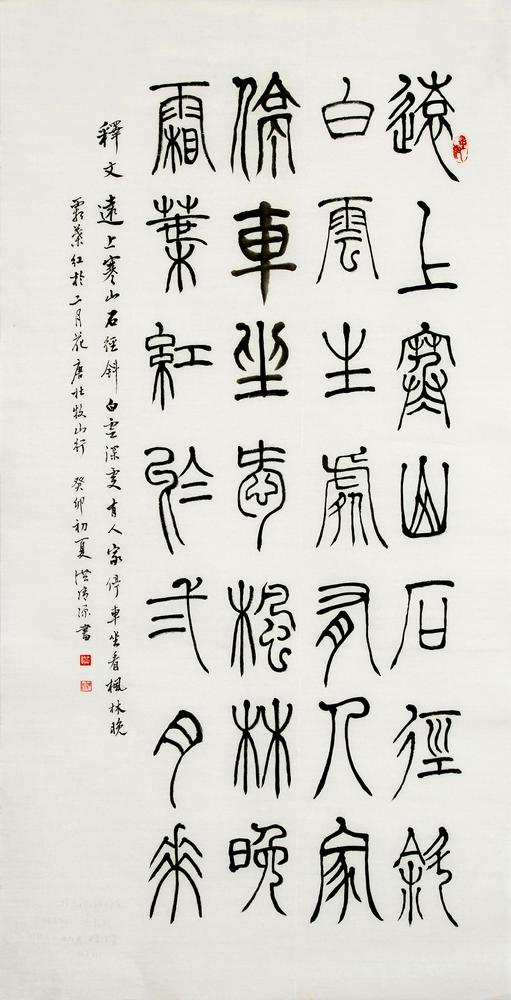 遠上寒山石徑斜
白雲生處有人家
停車坐愛楓林晚
霜葉紅於弍月花
釋文 遠上寒山石徑斜白雲深處有人家停車坐看楓林晚
霜葉紅於二月花 唐杜牧山行 癸卯初夏 洪源書